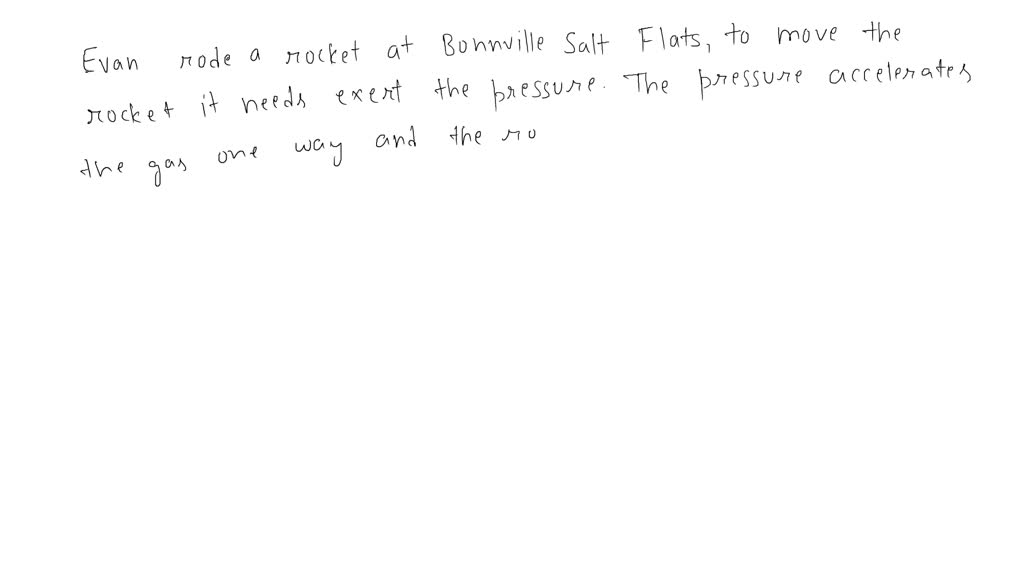 Evan rode a rocket at Bonnville Salt Flats, to move the
rocket it needs exert the pressure. The pressure accelerates
the gas one way and the ro